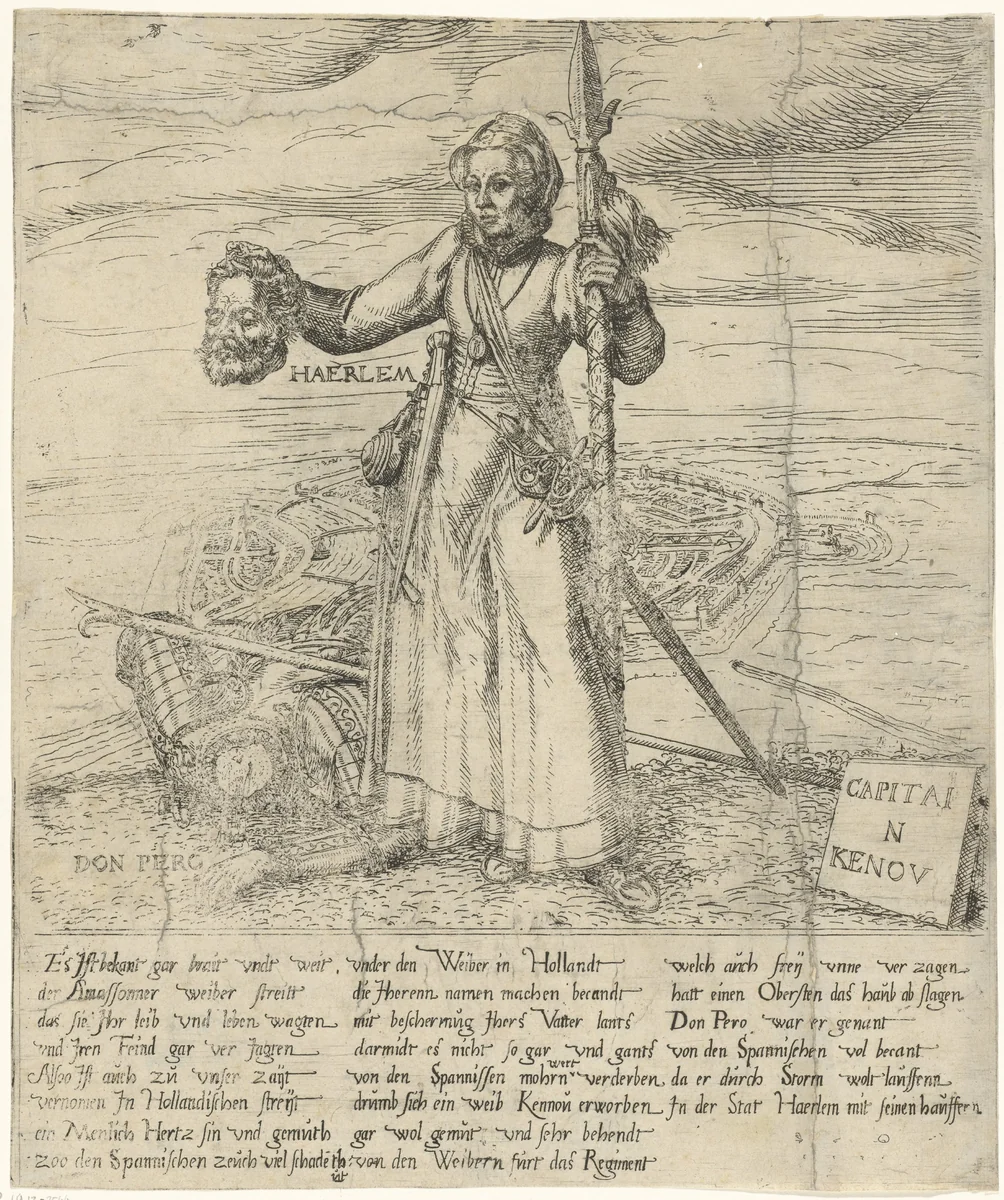 HAERLEM
DON PERO
CAPITAI
N
KENOV
Es Jst bekant gar brait vndt weit,
der Amassonner weiber streitt
das sie Jhr leib vnd leben wagten
vnd Jren Feind gar ver Jagten
Alsoo Jst auch zů vnser zaÿt
vernomen Jn Hollandischen streÿt
ein Menlich Hertz sin vnd gemůth
zoo den Spannischen zeuch viel schade th
ůt
vnder den Weiber in Hollandt
die Jherenn namen machen becandt
mit beschermůg Jhers Vatter lants
darmidt es nicht so gar vnd gants
wert
von den Spannissen mohrn verderben
drumb sich ein weib Kennoů erworben
gar wol gemůt vnd sehr behendt
von den Weibern fürt das Regiment
welch aůch freÿ vnne ver zagen
hatt einen Obersten das haůb ab slagen
Don Pero war er genant
von den Spannischen vol becant
da er důrch Storm wolt lauffenn
Jn der Stat Haerlem mit seinen hauffern